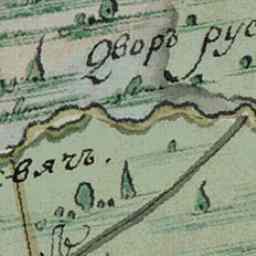 Дворъ рус
вячъ.